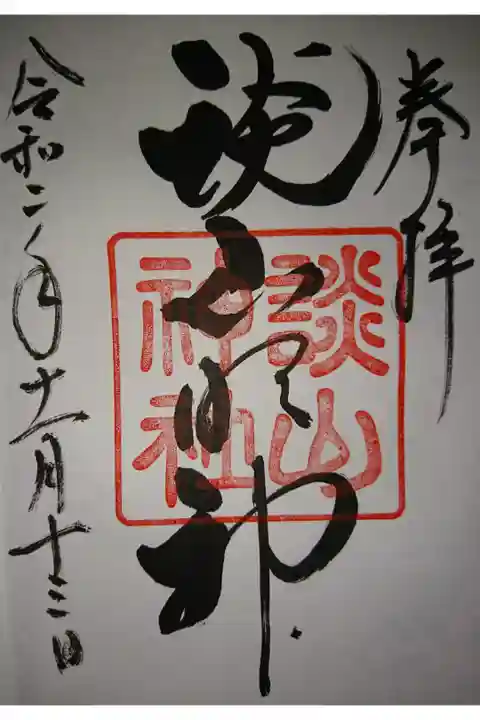 奉拝
談山明神
談山
神社
令和二年十一月十三日